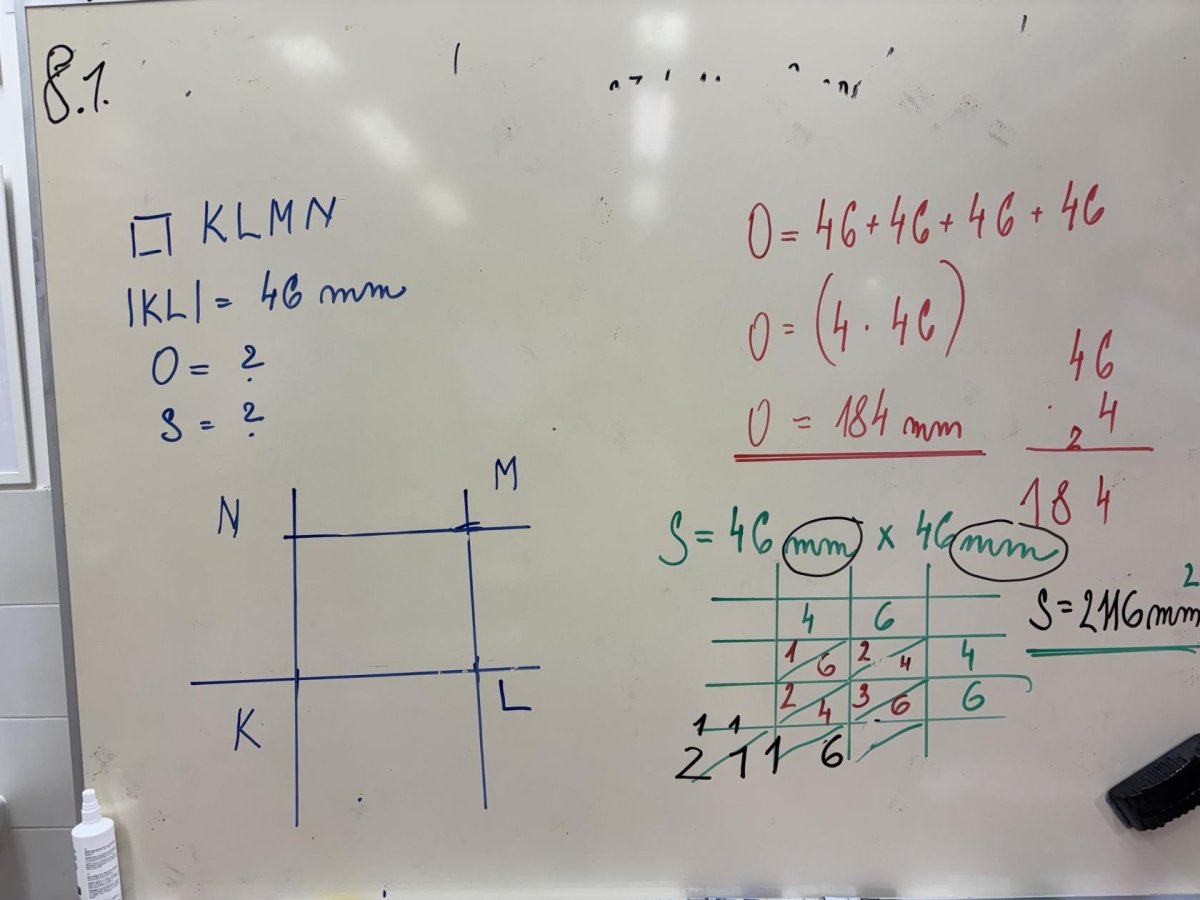 8.1.
□ KLMN
|KL| = 46 mm
O = ?
S = ?
N M
K L
O = 46 + 46 + 46 + 46
O = (4 · 46)
O = 184 mm
46
· 4
2
184
S = 46 mm x 46 mm
4 6
1 6 2 4 4
2 4 3 6 6
1 1
2 1 1 6
S = 2116 mm²